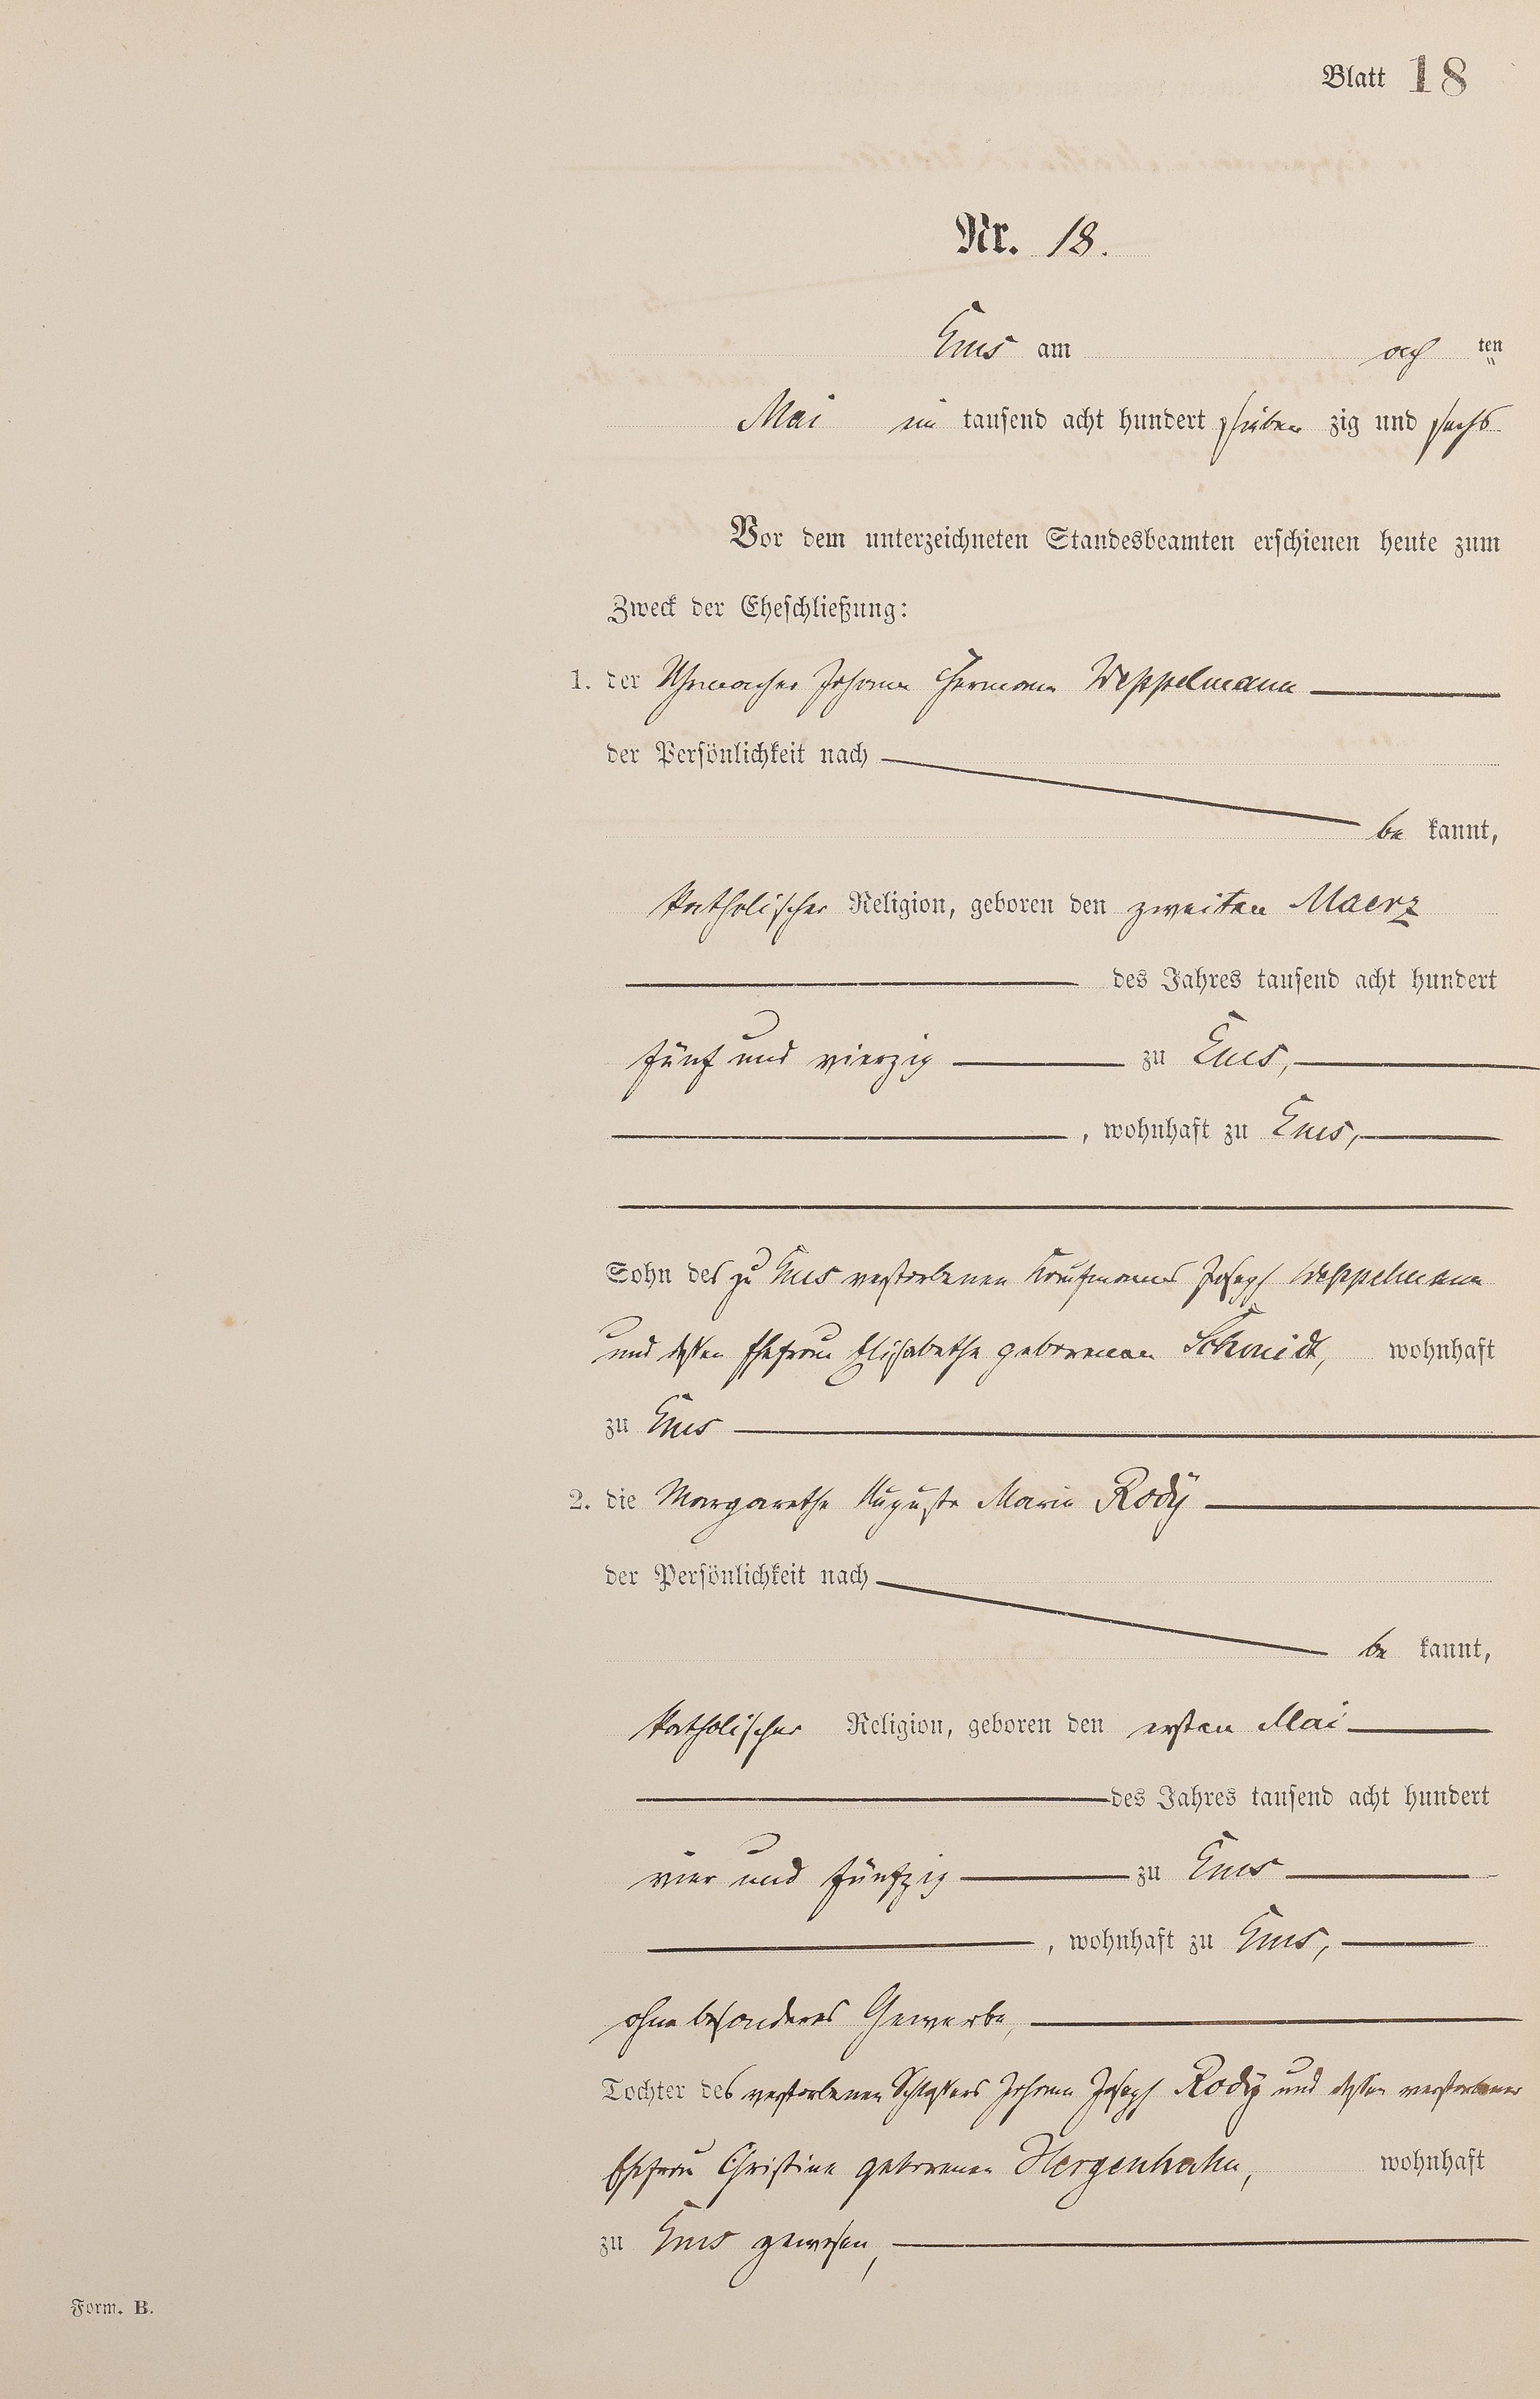 Blatt 18
Nr. 18.
Ems am ach ten
Mai ein tausend acht hundert sieben zig und sechs
Vor dem unterzeichneten Standesbeamten erschienen heute zum
Zweck der Eheschließung:
1. der Uhrmacher Johann Hermann Weppelmann
der Persönlichkeit nach
be kannt,
katholischer Religion, geboren den zweiten Maerz
des Jahres tausend acht hundert
fünf und vierzig zu Ems,
, wohnhaft zu Ems,
Sohn des zu Ems verstorbenen Kaufmanns Joseph Weppelmann
und dessen Ehefrau Elisabethe geborenen Schmidt, wohnhaft
zu Ems
2. die Margarethe Auguste Maria Rody
der Persönlichkeit nach
be kannt,
katholischer Religion, geboren den ersten Mai
des Jahres tausend acht hundert
vier und fünfzig zu Ems
, wohnhaft zu Ems,
ohne besonderes Gewerbe,
Tochter des verstorbenen Schlossers Johann Joseph Rody und dessen verstorbener
Ehefrau Christine geborenen Hergenhahn, wohnhaft
zu Ems gewesen,
Form. B.